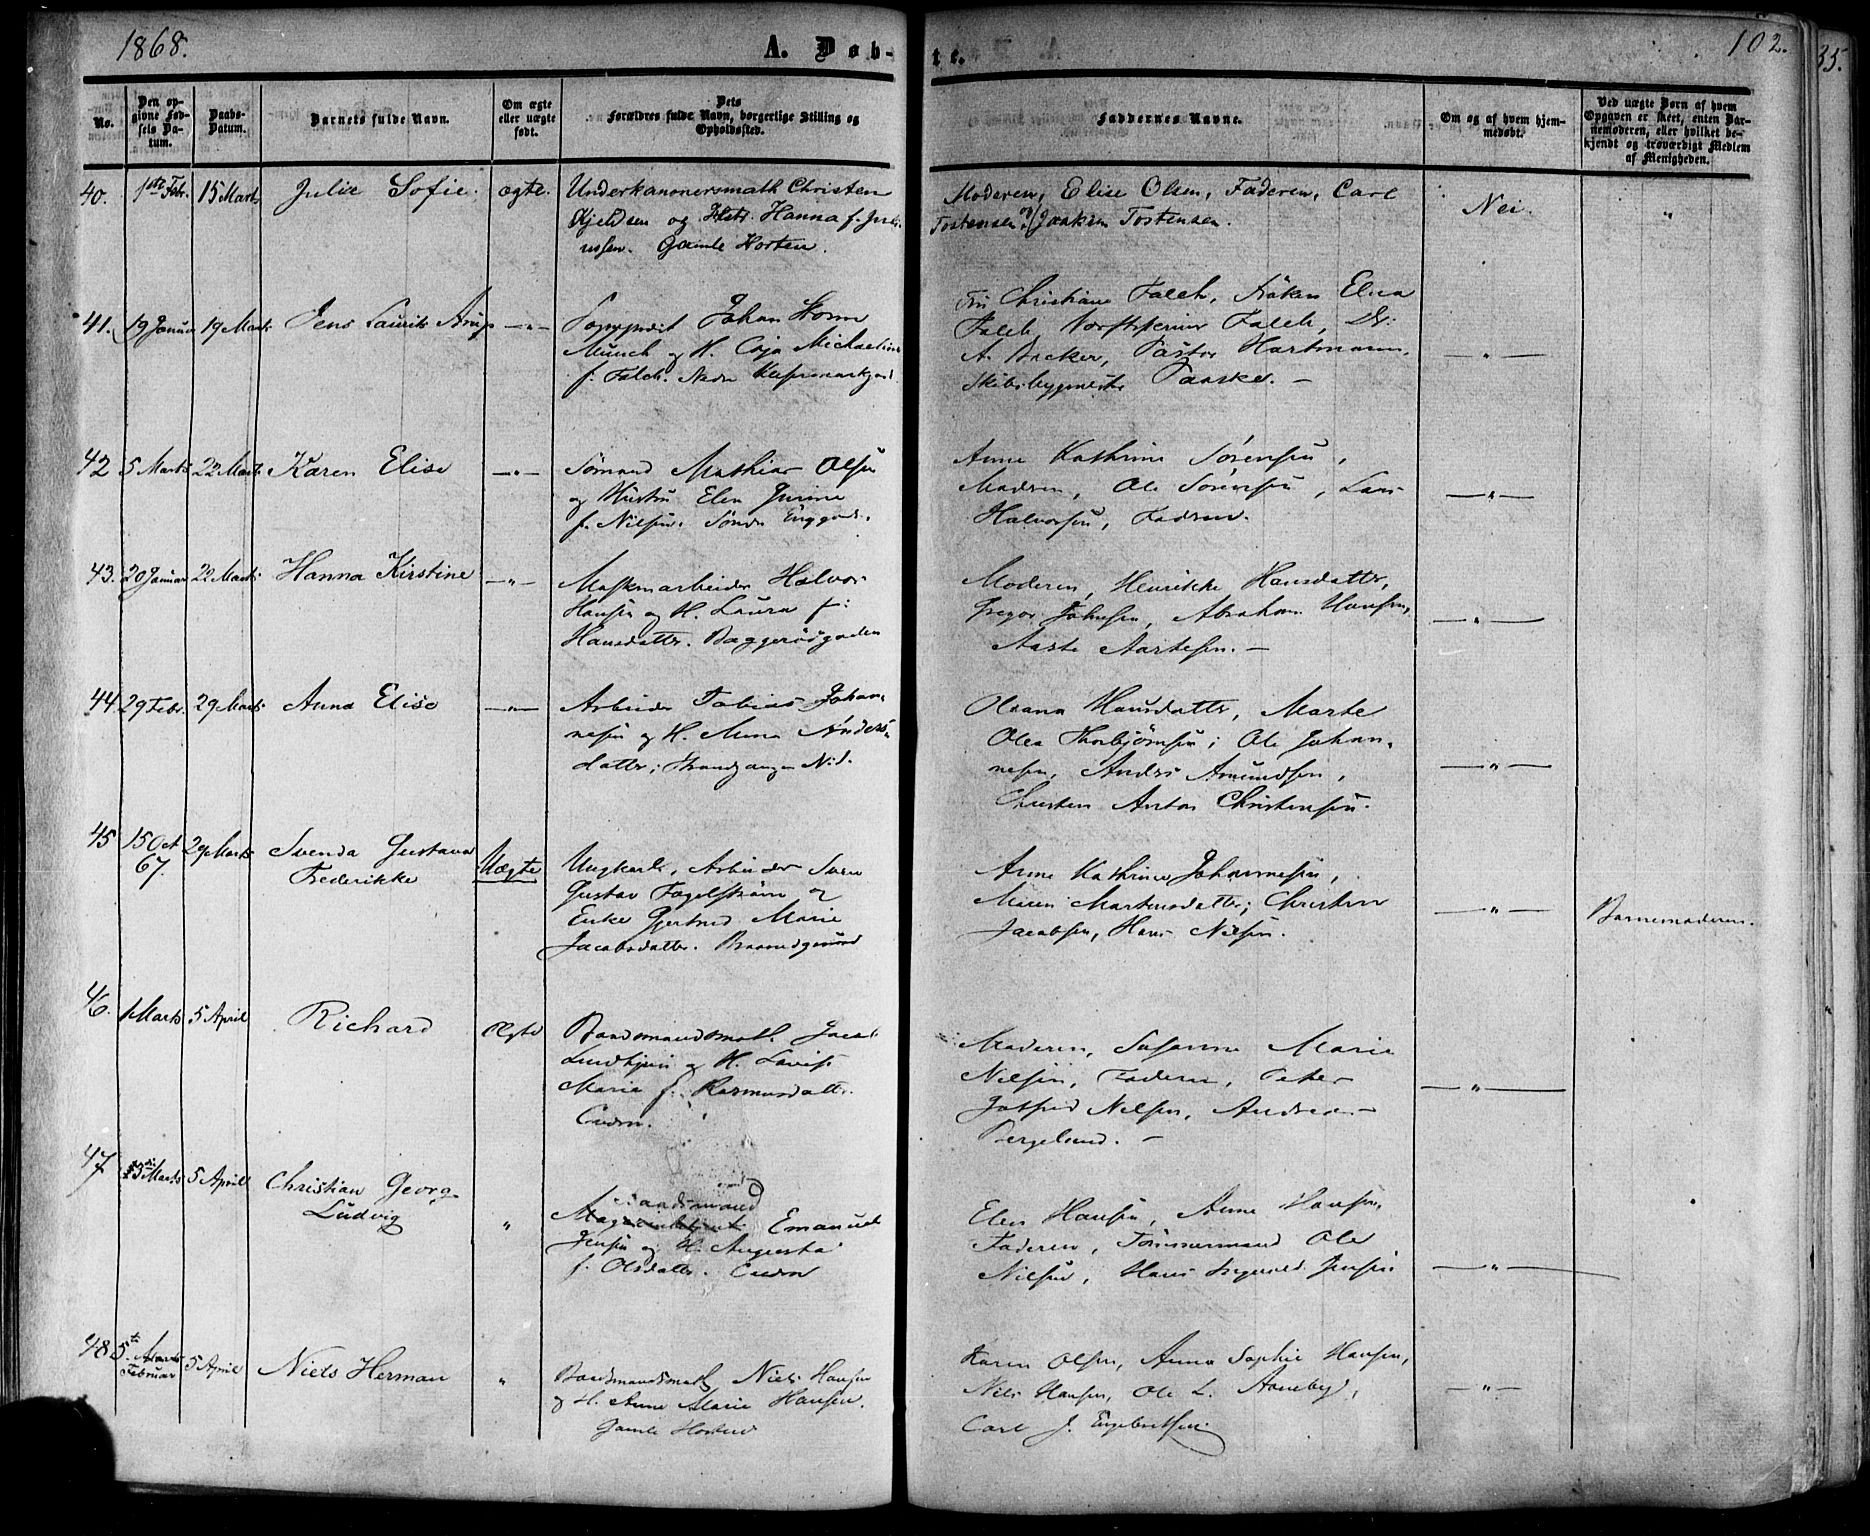 1868.
A. Døb-
te.
102.
35.
No.
Den op-
givne Fød-
sels Da-
tum.
Daabs-
Datum.
Barnets fulde Navn.
Om ægte
eller uægte
født.
Dets
Forældres fulde Navn, borgerlige Stilling og
Opholdssted.
Faddernes Navne.
Om og af hvem hjem-
medøbt.
Ved uægte Børn af hvem
Opgaven er skeet, enten Bar-
nemoderen, eller hvilket be-
kjendt og troværdigt Medlem
af Menigheden.
40.
1ste Febr.
15 Marts
Julie Sofie.
ægte.
Underkanonersmath Christen
Kjeldsen og Hstr. Hanna f. Juli-
ussen. Gamle Horten.
Moderen, Elise Olsen, Faderen, Carl
Tostensen og Joakim Tostensen.
Nei.
"
41.
19 Januar
19 Marts
Jens Laurits Arup
—"—
Johan Storm
Munch og H. Caja Michaeline
f. Falch. Nedre
Fru Christiane Falch, Frøken Elisa
Falch, Falch, Dr.
A. Backer, Pastor Hartmann,
Skibsbygmester Paaske. —
—"—
42
5 Marts
22 Marts
Karen Elise
—"—
Sømand Mathias Olsen
og Hustru Elen Gurine
f. Nilsen. Søndre Enggade.
Anne Kathrine Sørensen,
Madsen, Ole Sørensen, Lars
Halvorsen, Fadren.
—"—
43.
20 Januar
22 Marts
Hanna Kirstine
—"—
Maskinarbeider Halvor
Hansen og H. Laura f:
Hansdatter. Baggerødgaden
Moderen, Henrikke Hansdatter,
Gregor Johnsen, Abraham Hansen,
Aaste Aastesen. —
—"—
44.
29 Febr.
29 Marts
Anna Elise
—"—
Arbeider Tobias Johan-
nesen og H. Anna Anders-
datter; Strandgangen N.d.
Oleana Hansdatter, Marte
Olea Thorbjørnsen; Ole Johan-
nesen, Anders Amundsen,
Christen Anton Christensen.
—"—
45
15 Oct
67.
29 Marts
Svenda Gustava
Frederikke
Uægte
Ungkarl, Arbeider Sven
Gustav Fogelstrøm og
Enke Gjertrud Marie
Jacobsdatter. Braarudgrund
Anne Kathrine Johannesen,
Maren Martensdatter; Christen
Jacobsen, Hans Nilsen.
—"—
Barnemoderen.
46.
1 Marts
5 April
Richard
Ægte
Baadsmandsmath Jacob
og H. Lovise
Marie f. Rasmusdatter.
Moderen, Susanne Marie
Nilsen, Faderen, Peter
Gotfried Nilsen, Andrea
Bergelund. —
—"—
47
Marts
5 April
Christian Georg
Ludvig
"
Baadsmand
Emanuel
Jensen og H. Augusta
f. Olsdatter.
Elen Hansen, Anne Hansen,
Faderen, Tømmermand Ole
Nilsen, Hans Ingvald Jensen
—"—
48
5te
Februar
5 April
Niels Herman
"
Baadsmandsmath Niels Hansen
og H. Anne Marie Hansen.
Gamle Horten
Karen Olsen, Anna Sophie Hansen,
Nils Hansen, Ole L. Aaneby,
Carl J. Engebretsen
—"—